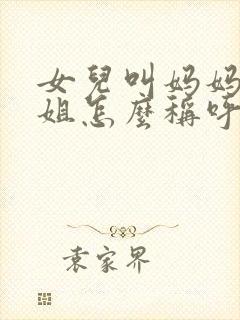 女兒叫媽媽
姐怎麼稱呼
袁家界